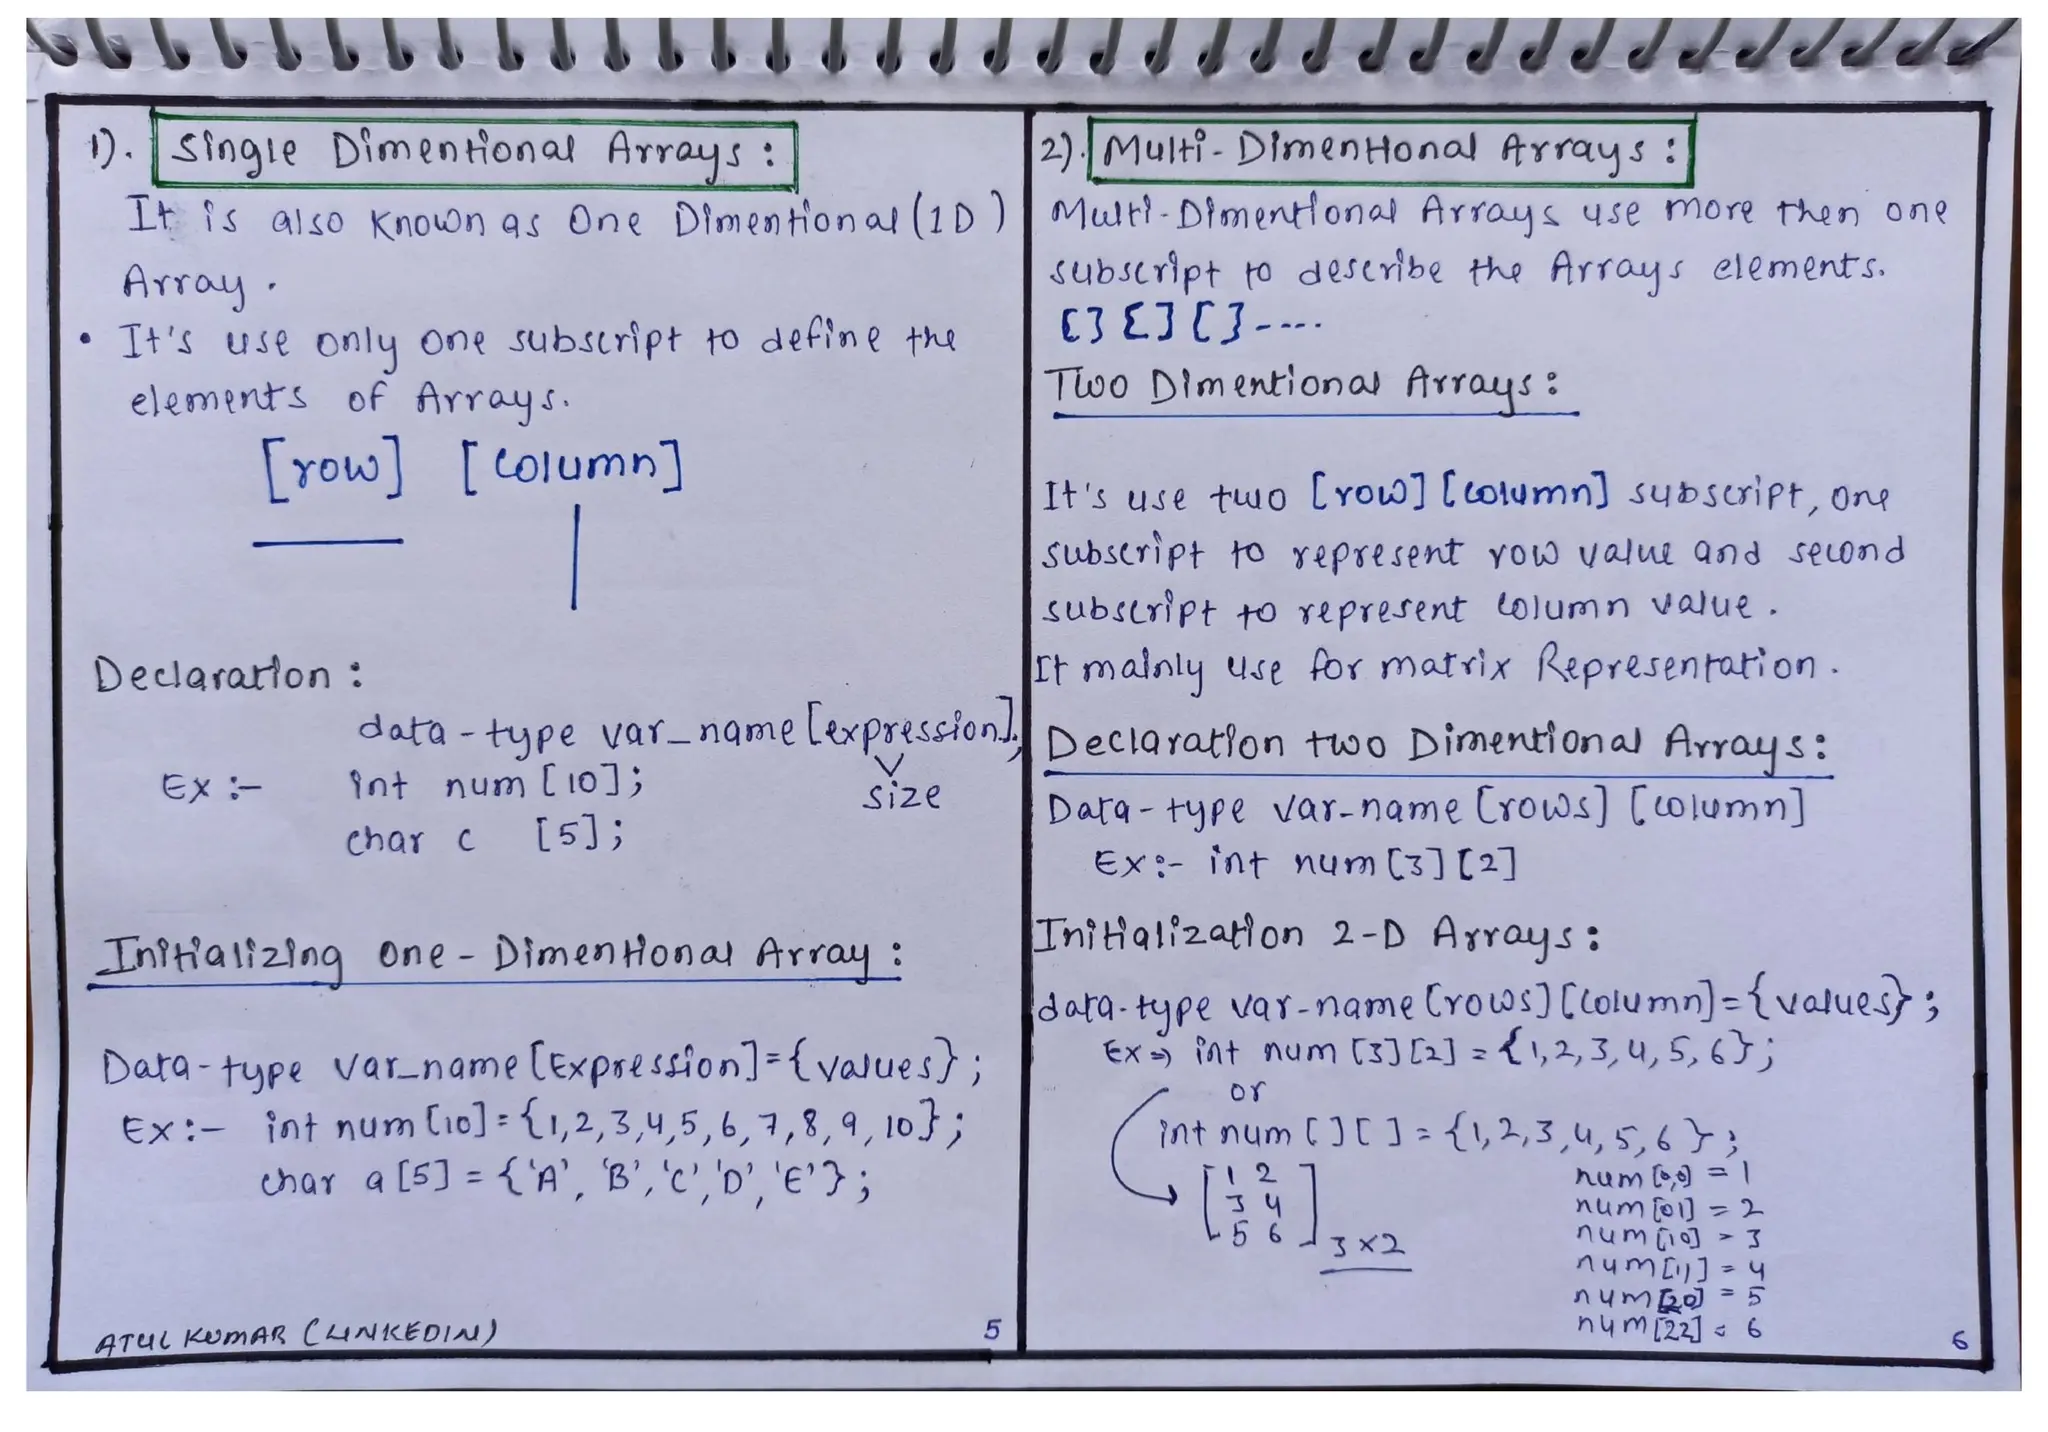 1). Single Dimentional Arrays :
It is also Known as One Dimentional (1D)
Array.
• It's use only one subscript to define the
elements of Arrays.
[row] [column]
Declaration :
data-type var_name [expression];
size
Ex :- int num [10];
char c [5];
Initializing One-Dimentional Array :
Data-type var_name [Expression]={values};
Ex :- int num [10]={1,2,3,4,5,6,7,8,9,10};
char a [5] = {'A', 'B', 'C', 'D', 'E'};
ATUL KUMAR (LINKEDIN)
5
2). Multi-Dimentional Arrays :
Multi-Dimentional Arrays use more then one
subscript to describe the Arrays elements.
[] [] [] ----.
Two Dimentional Arrays :
It's use two [row] [column] subscript, one
subscript to represent row value and second
subscript to represent column value.
It mainly use for matrix Representation.
Declaration two Dimentional Arrays :
Data-type var-name [rows] [column]
Ex :- int num [3] [2]
Initialization 2-D Arrays :
data-type var-name [rows] [column]={values};
Ex => int num [3] [2] = {1,2,3,4,5,6};
or
int num [ ] [ ] = {1,2,3,4,5,6};
1 2
3 4
5 6
3×2
num [0,0] = 1
num [01] = 2
num [10] = 3
num [11] = 4
num [20] = 5
num [22] = 6
6